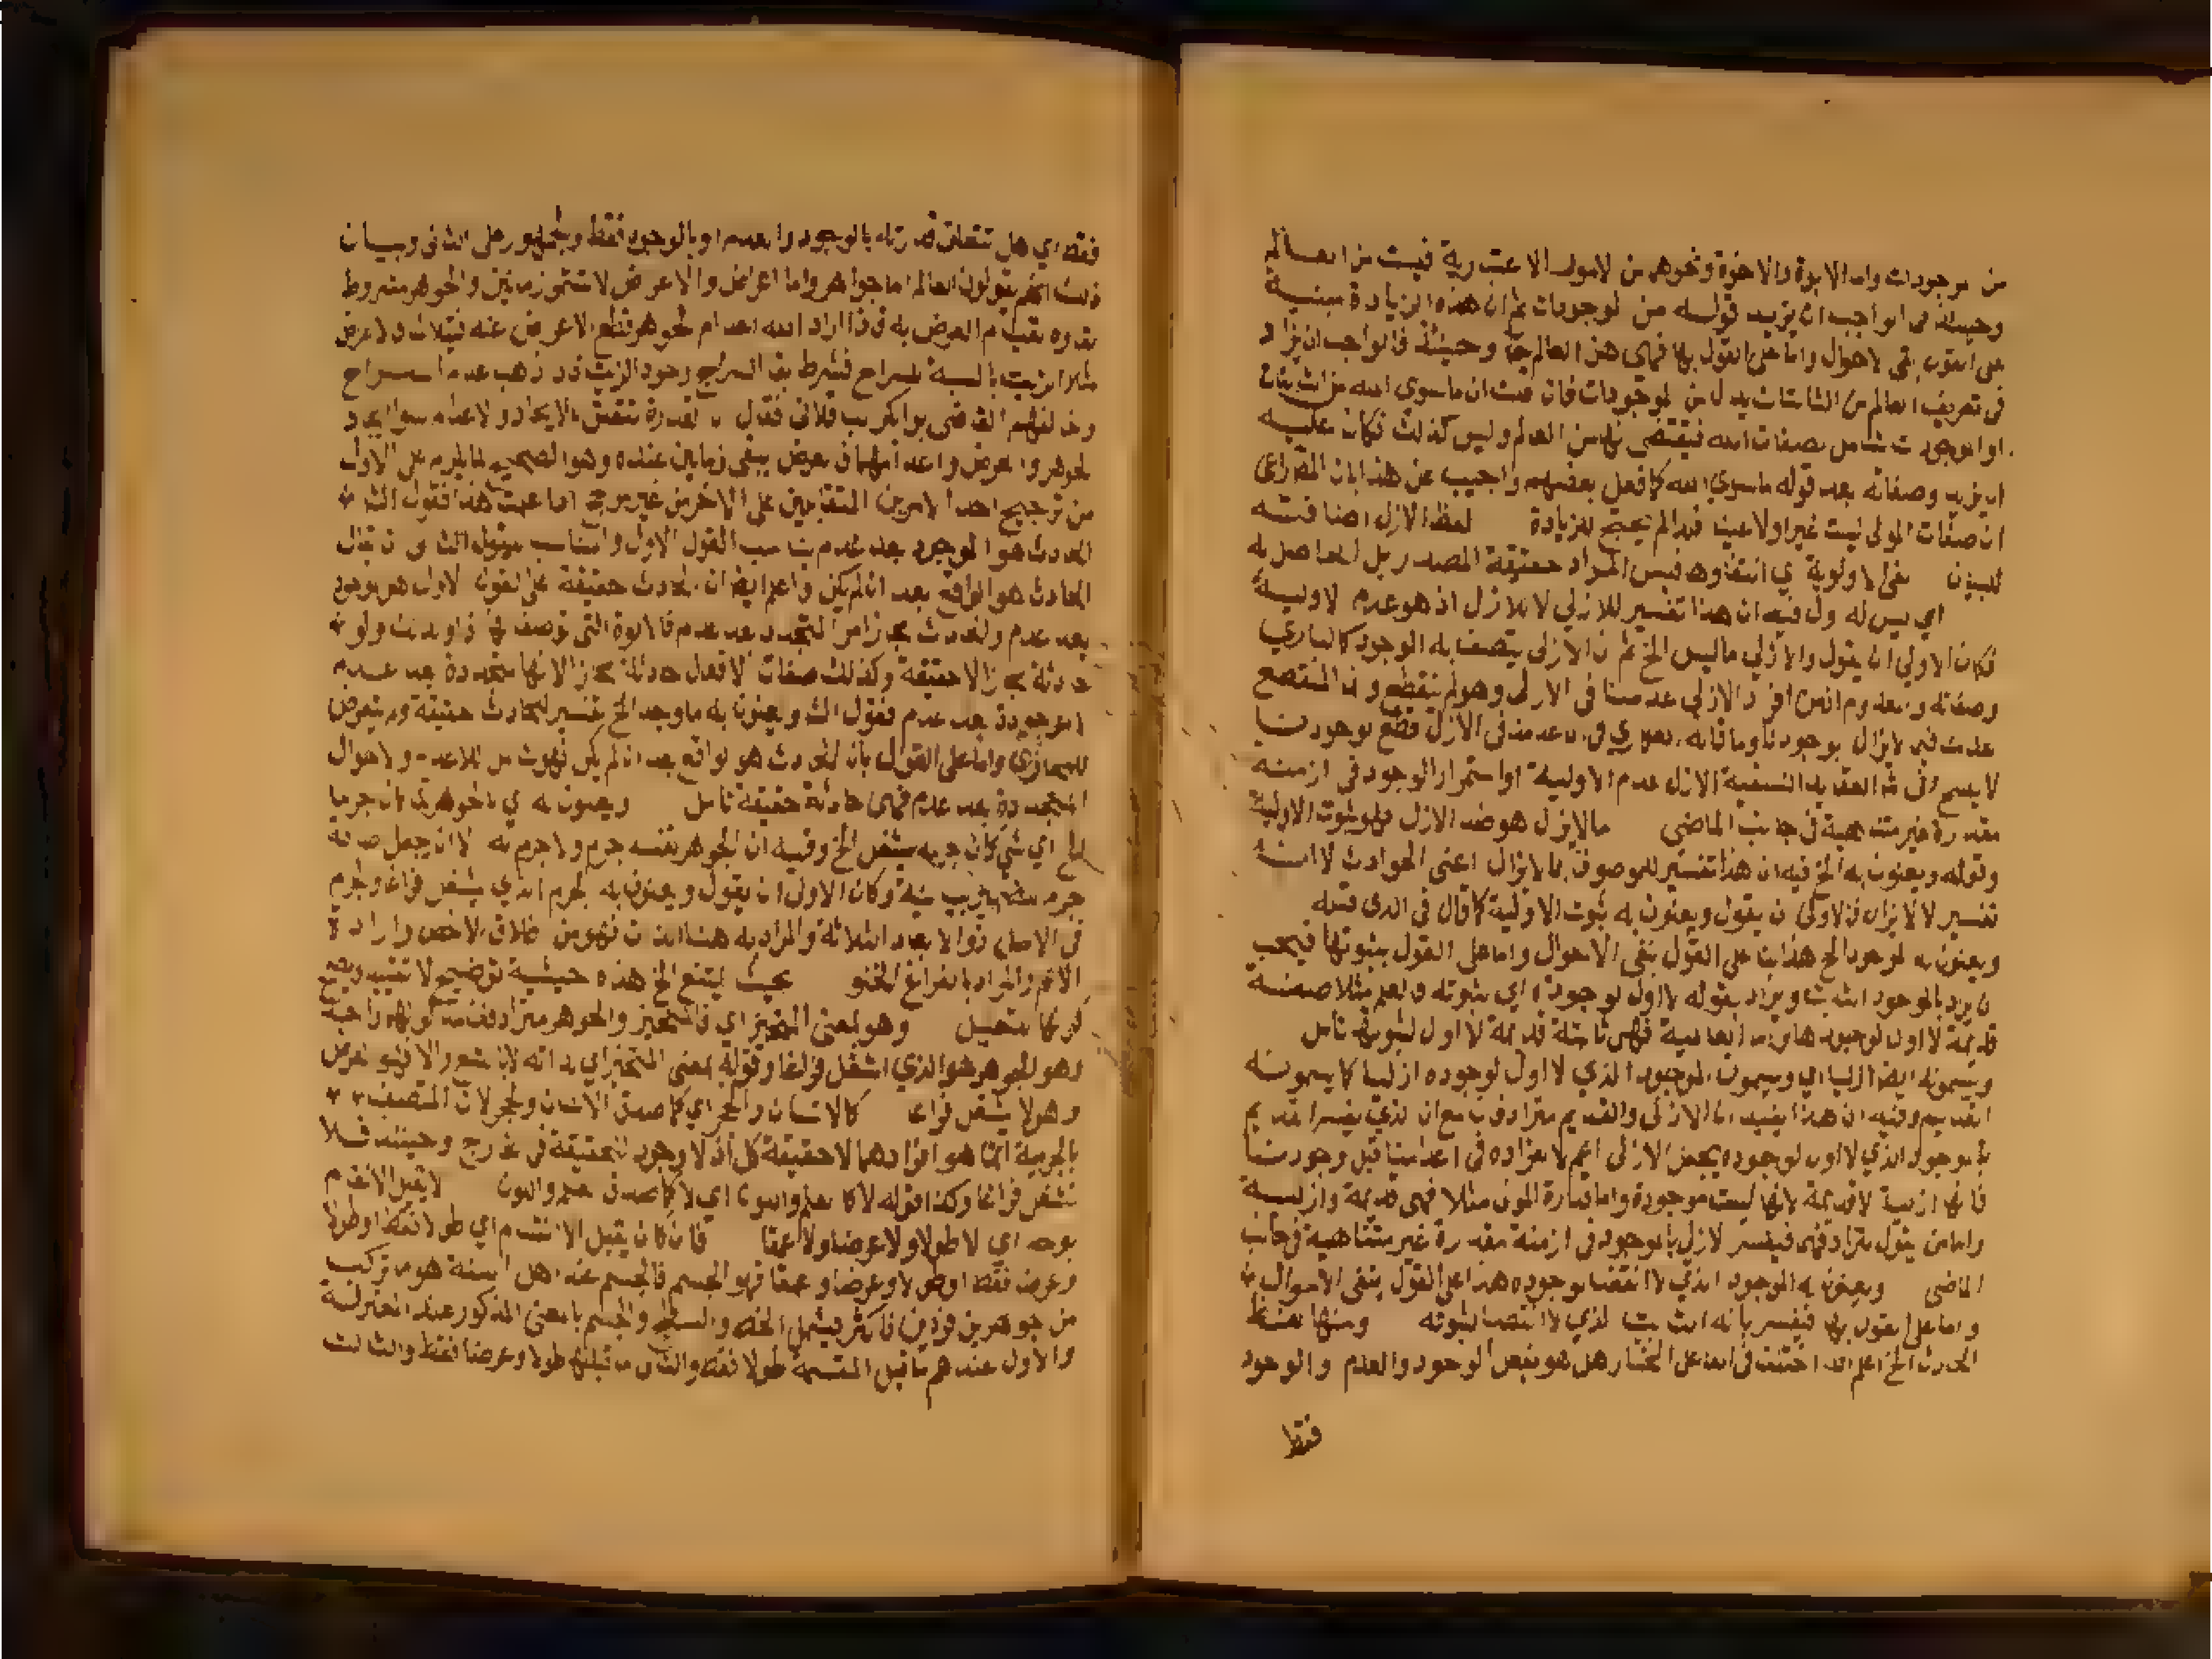 من الموجودات واما الابوة والاخوة ونحوهم من الامور الاعتبارية فليست من العالم
وحينئذ الواجب ان يزيد قوله من الموجودات ثم ان هذه الزيادة مبنية
على القول بنفي الاحوال واما على القول بها فهي من العالم وحينئذ فالواجب ان يزاد
في تعريف العالم من الثابتات بدل من الموجودات فان قلت ان ما سوى الله من الثابتات
او الموجودات شامل لصفات الله فيقتضي انها من العالم وليس كذلك فكان عليه
ان يزيد وصفاته بعد قوله ما سوى الله كما فعل بعضهم واجيب عن هذا بان
ان صفات المولى ليست غيرا ولا عينا فلذا لم يحتج للزيادة لفظ الازل
للبيان نفي الاولوية اي انتفاؤها فليس المراد حقيقة المصدر بل الحاصل به
اي ليس له اول فيه ان هذا تفسير للازلي لا للازل اذ هو عدم الاولية
فكان الاولى ان يقول والازلي ما ليس الخ ثم ان الازلي يتصف به الوجود كالباري
وصفاته والمعدوم افراد الازلي عدمنا في الازل وهو لم ينقطع وان المنقطع
عدمنا فيما لا يزال بوجودنا وما قاله في ان عدمنا في الازل قطع بوجودنا
لا يصح في شرح العقائد النسفية الازل عدم الاولية او استمرار الوجود في ازمنة
مقدرة غير متناهية في جانب الماضي ما لا يزال هو ضد الازل فهو ثبوت الاولية
وقوله ويعنون به الخ فيه ان هذا تفسير للموصوف بما لا يزال اعني الحوادث لا انه
تفسير لا لا يزال فالاولى ان يقول ويعنون به ثبوت الاولية كما قال في الذي قبله
ويعنون به الموجود الخ هذا على القول بنفي الاحوال واما على القول بثبوتها فيجب
ان يراد بالوجود الثابت ويراد بقوله لا اول لوجوده اي ثبوته والعلم مثلا صفة
قديمة لا اول لوجودها واما العالمية فهي ثابتة قديمة لا اول لثبوتها تأمل
ويسمونه ايضا ازليا اي ويسمون الموجود الذي لا اول لوجوده ازليا كما يسمونه
القديم وفيه ان هذا يفيد ان الازلي والقديم مترادفان مع ان الذي يفسر القديم
بالموجود الذي لا اول لوجوده يجعل الازلي اعم لانفراده في اعدامنا قبل وجودنا
فانها ازلية لا قديمة لانها ليست موجودة واما قدرة المولى مثلا فهي قديمة وازلية
واما من يقول بترادفهما فيفسر الازل بالوجود في ازمنة مقدرة غير متناهية في جانب
الماضي ويعنون به الموجود الذي لا انقضا لوجوده هذا على القول بنفي الاحوال
واما على القول بها فيفسر بانه الثابت الذي لا انقضا لثبوته ومنها لفظ
الحادث الخ اعلم انه اختلف في الفاعل المختار هل هو يفعل الوجود والعدم والوجود
فقط
فقط اي هل تتعلق قدرته بالوجود والعدم او بالوجود فقط والجمهور على الثاني وبيان
ذلك انهم يقولون العالم اما جواهر واما اعراض والاعراض لا تبقى زمانين والجوهر مشروط
بقاؤه بقيام العرض به فاذا اراد الله اعدام الجوهر قطع الاعراض عنه
مثلا الزيت بالنسبة للسراج فشرط بقا السراج وجود الزيت فاذا ذهب عدم السراج
وخالفهم القاضي ابو بكر الباقلاني فقال ان القدرة تتعلق بالايجاد والاعدام سوا
الجوهر والعرض واعدامهما فان العرض يبقى زمانين عنده وهو الصحيح لما يلزم على الاول
من ترجيح احد الامرين المتقابلين على الاخر من غير مرجح اذا علمت هذا فقول الشارح
الحادث هو الموجود بعد عدم يناسب القول الاول والمناسب للقول الثاني ان يقال
الحادث هو الواقع بعد ان لم يكن واعلم ايضا ان الحادث حقيقة على القول الاول هو الموجود
بعد عدم والحادث مجازا هو المتجدد بعد عدم فالابوة التي توصف بها
حادثة مجازا لا حقيقة وكذلك صفات الافعال حادثة مجازا لانها متجددة بعد عدم
لا موجودة بعد عدم فقول الشارح ويعنون به ما وجد الخ تفسير للحادث حقيقة ولم يتعرض
للمجازي واما على القول بان الحادث هو الواقع بعد ان لم يكن فهو شامل للاعدام والاحوال
المتجددة بعد عدم فهي حادثة حقيقة تأمل ويعنون به اي بالجوهر ما كان جرما
الخ اي شيء كان جرمه يشغل الخ وفيه ان الجوهر نفسه جرم ولا جرم له الا ان يجعل اضافة
جرم للضمير بيانية وكان الاولى ان يقول ويعنون به الجرم الذي يشغل فراغا والجرم
في الاصل ذو الابعاد الثلاثة والمراد به هنا الذات فهو من اطلاق الاخص وارادة
الاعم والمراد بالفراغ الخلو بحيث يمتنع الخ هذه حيثية توضيح لا تقييد
وهو بمعنى المتحيز اي فالمتحيز والجوهر مترادفان
وهو الجوهر هو الذي اشغل فراغا وقوله بمعنى المتحيز اي بذاته
وهو لا يشغل فراغا كالانسان والحجر اي كما صدق الانسان والحجر لان المتصف
بالجرمية انما هو افرادهما لا حقيقة كل اذ لا وجود للحقيقة في الخارج وحينئذ فلا
تشغل فراغا وكذا قوله لا كالعلم واللون اي لا كما صدق علم واللون لا يقبل الانقسام
بوجه اي لا طولا ولا عرضا ولا عمقا فان كان يقبل الانقسام اي طولا فقط او طولا
وعرضا فقط او طولا وعرضا وعمقا فهو الجسم فالجسم عند اهل السنة هو ما تركب
من جوهرين فردين فاكثر فيشمل الخط والسطح والجسم بالمعنى المذكور عند المعتزلة
والاول عندهم ما قبل القسمة طولا فقط والثاني ما قبلها طولا وعرضا فقط والثالث